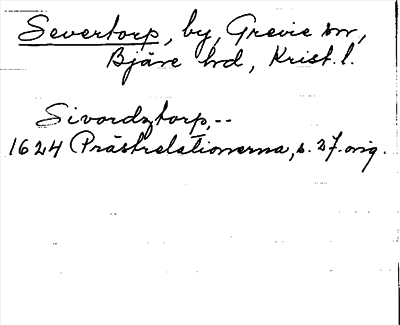 Severtorp, by, Grevie sn,
Bjäre hd, Krist. l.
Sivordztorp, --
1624 Prästrelationerna, s. 27. orig.